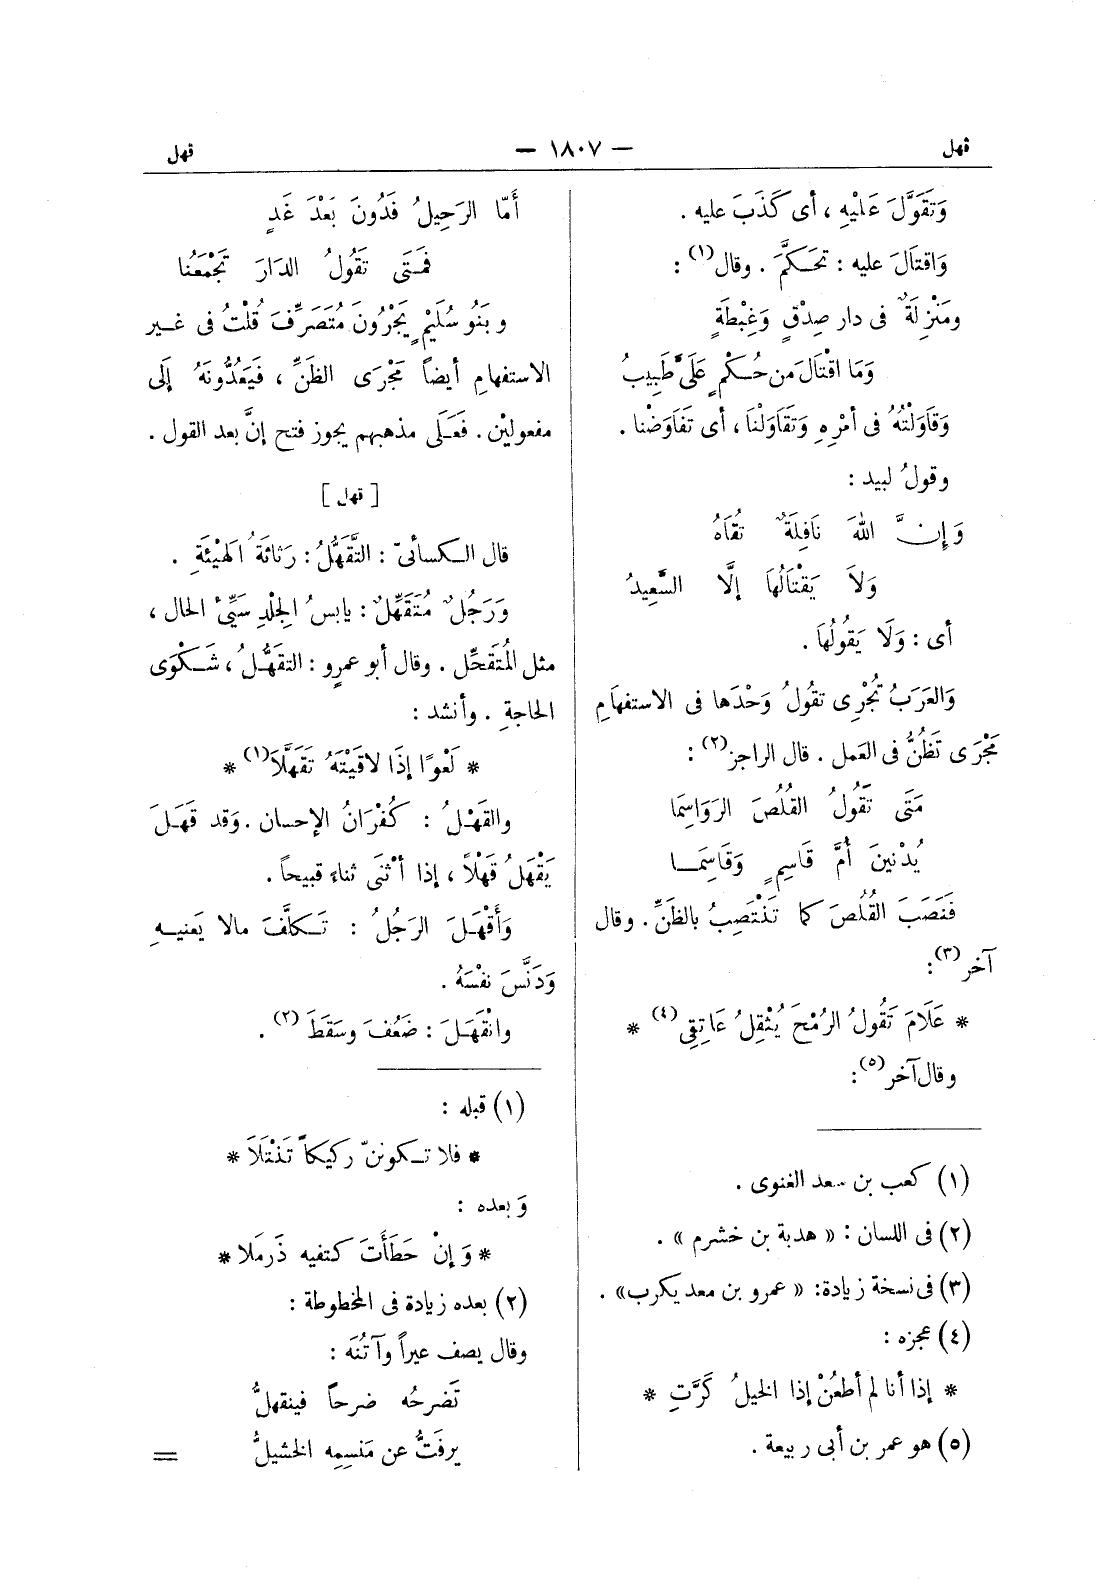 قهل
— ١٨٠٧ —
قهل
وَتَقَوَّلَ عَلَيْهِ ، أى كَذَبَ عليه .
وَاقتَالَ عليه : تحَكَّمَ . وقال(١) :
ومَنْزِلَةٌ فى دار صِدْقٍ وَغِبْطَةٍ
وَمَا اقْتَالَ من حُكْمٍ عَلَىَّ طَبِيبُ
وَقَاوَلْتُهُ فى أمْرِهِ وَتَقَاوَلْنَا ، أى تَفَاوَضْنا .
وقولُ لبيد :
وَإِنَّ اللهَ نَافِلَةٌ تُقَاهُ
وَلاَ يَقْتَالُهَا إلَّا السَّعِيدُ
أى : وَلَا يَقُولُهَا .
وَالعَرَبُ تُجْرِى تقُولُ وَحْدَها فى الاستفهامِ
مَجْرَى تَظُنُّ فى العَمل . قال الراجز(٢) :
مَتَى تَقُولُ القُلُصَ الرَوَاسِمَا
يُدْنِينَ أُمَّ قَاسِمٍ وَقَاسِمَا
فَنَصَبَ القُلُصَ كما تَنْتَصِبُ بالظَنِّ . وقال
آخر(٣) :
* عَلَامَ تَقُولُ الرُمْحَ يُثْقِلُ عَاتِقِى(٤) *
وقال آخر(٥) :
(١) كعب بن سعد الغنوى .
(٢) فى اللسان : « هدبة بن خشرم » .
(٣) فى نسخة زيادة: « عمرو بن معد يكرب» .
(٤) عجزه :
* إذا أنا لم أطعُنْ إذا الخيلُ كَرَّتِ *
(٥) هو عمر بن أبى ربيعة .
أَمَّا الرَحِيلُ فَدُونَ بَعْدَ غَدٍ
فَمَتَى تَقُولُ الدَارَ تَجْمَعُنا
وبَنُو سُلَيْمٍ يَجْرُونَ مُتَصَرِّفَ قُلْتُ فى غير
الاستفهامِ أيضاً مَجْرَى الظَنِّ ، فَيَعُدُّونَهُ إلَى
مفعولَيْن . فَعَلَى مذهبهم يجوز فتح إنَّ بعد القول .
[ قهل ]
قال الكسائىّ : التَّقَهُّلُ : رَثاثَةُ الهَيْئَةِ .
وَرَجُلٌ مُتَقَهِّلٌ : يابسُ الجِلْدِ سَيِّئ الحال ،
مثل المُتَقَحِّل . وقال أبو عمرٍو : التقهُّلُ ، شَكْوَى
الحاجةِ . وأنشد :
* لَعْوًا إذَا لاقَيْتَهُ تَقَهَّلَا(١) *
والقَهْلُ : كُفْرَانُ الإحسان . وَقد قَهَلَ
يَقْهَلُ قَهْلًا ، إذا أثْنَى ثناء قبيحاً .
وَأَقْهَلَ الرَجُلُ : تَكلَّفَ مالا يَعنيهِ
وَدَنَّسَ نفْسَهُ .
وانْقَهَلَ : ضَعُفَ وسَقَطَ (٢) .
(١) قبله :
* فلا تكوننّ ركيكاً تَنْتَلَا *
وَبعده :
* وَإنْ حَطَأْتَ كتفيه ذَرمَلا *
(٢) بعده زيادة فى المخطوطة :
وقال يصف عيراً وآتُنَه :
تَضرحُه ضرحاً فينقهلُّ
يرفَتُّ عن مَنسِمِه الخشيلُّ
=